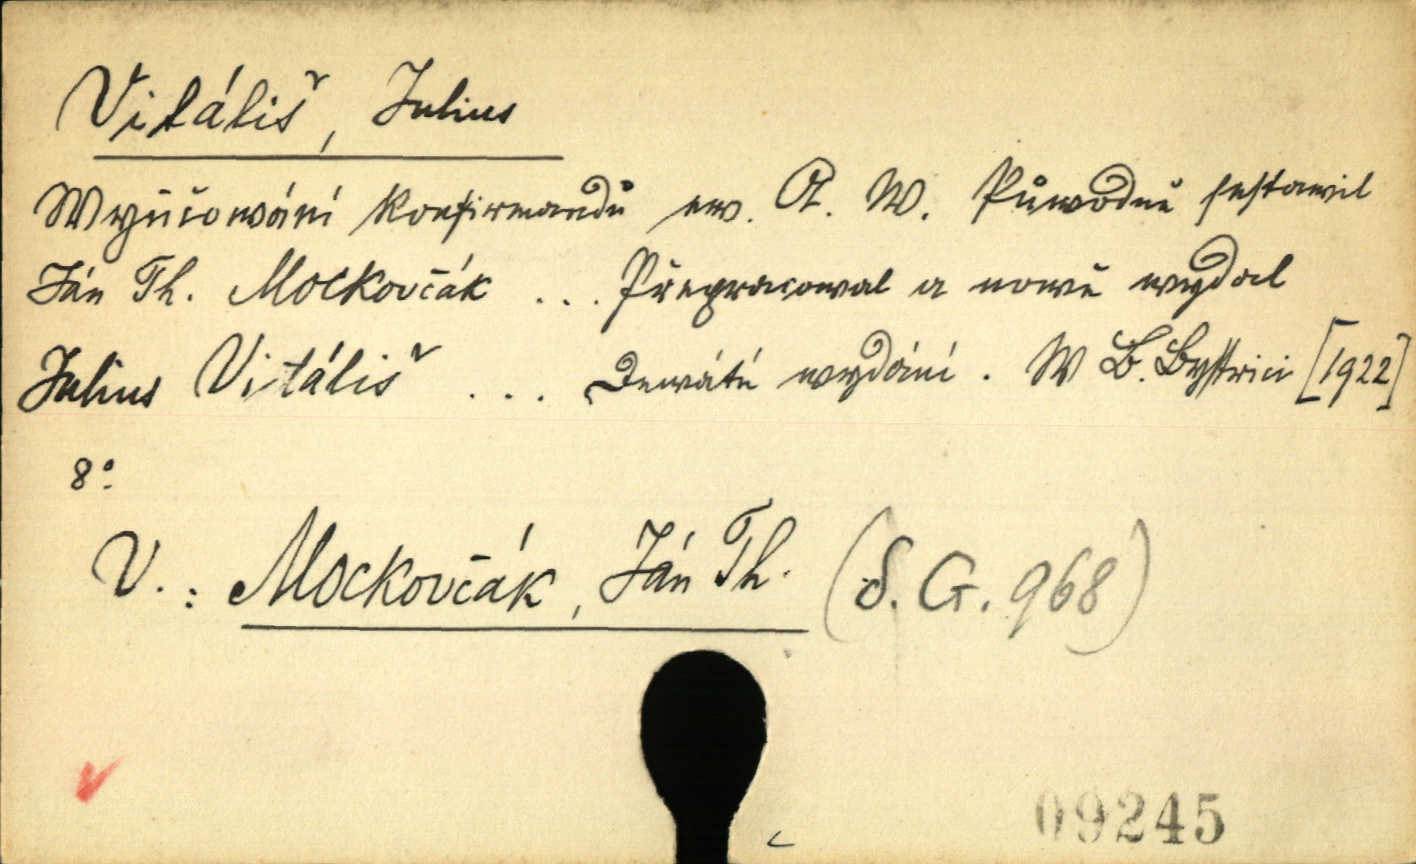 Vitáliš, Julius
Wyučowání konfirmandů ew. A. W. Půwodně sestawil
Ján Th. Mockovčák ... Přepracowal a nowě wydal
Julius Vitáliš ... Dewáté wydání. W B. Bystrici [1922]
8°
V.: Mockovčák, Ján Th. (S. G. 968)
09245